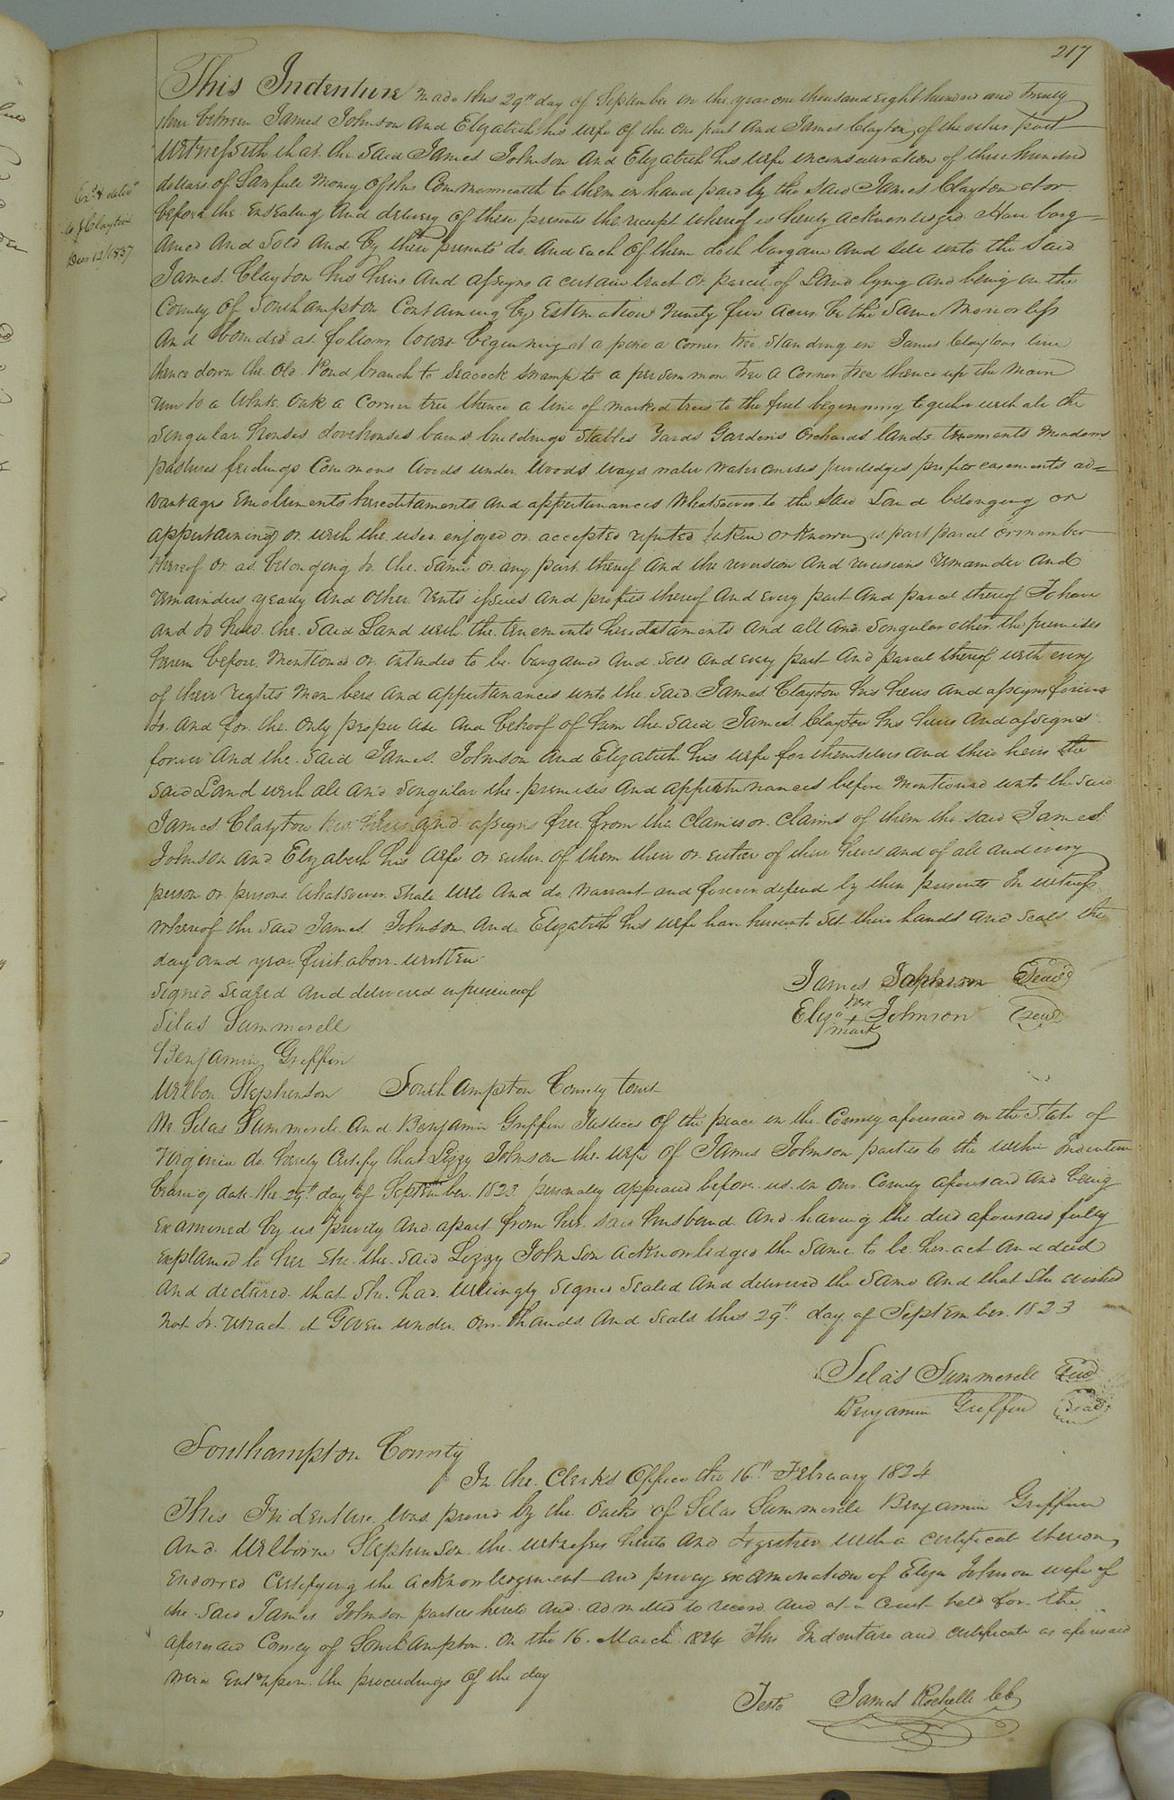 217
This Indenture made this 29th day of September in the year one thousand eight hundred and twenty
three between James Johnson and Elizabeth his wife of the one part and James Clayton of the other part
Witnesseth that the said James Johnson and Elizabeth his wife in consideration of three hundred
dollars of Lawfull money of this Commonwealth to them in hand paid by the said James Clayton at or
before the ensealing and delivery of these presents the receipt whereof is hereby acknowledged Have barg=
ained and sold and by these presents do and each of them doth bargain and sell unto the said
James Clayton his heirs and assigns a certain tract or parcel of Land lying and being in the
County of Southampton Containing by Estimation Ninety five acres be the same more or less
and bounded as follows towit beginning at a pine a corner tree standing in James Claytons line
thence down the old Pond branch to Seacock swamp to a persimmon tree a corner tree thence up the main
run to a White Oak a corner tree thence a line of marked trees to the first beginning together with all the
singular houses dovehouses barns buildings stables yards Gardens orchards lands tenements meadows
pastures feedings Commons woods under woods ways water water courses priviledges profits easements ad=
vantages emoluments hereditaments and appurtenances whatsoever to the said Land belonging or
appertaining or with the used enjoyed or accepted reputed taken or known as part parcel or member
thereof or as belonging to the same or any part thereof and the reversion and reversions remainder and
remainders yearly and other rents issues and profits thereof and every part and parcel thereof To have
and to hold the said Land with the tenements hereditaments and all and singular other the premises
herein before mentioned or intended to be bargained and sold and every part and parcel thereof with every
of their rights members and appurtenances unto the said James Clayton his heirs and assigns forever
to and for the only proper use and behoof of him the said James Clayton his heirs and assigns
forever And the said James Johnson and Elizabeth his wife for themselves and their heirs the
said Land with all and singular the premises and appurtenances before mentioned unto the said
James Clayton his heirs and assigns free from the claims or claims of them the said James
Johnson and Elizabeth his wife or either of them their or either of their heirs and of all and every
person or persons whatsoever shall will and do warrant and forever defend by these presents In witness
whereof the said James Johnson and Elizabeth his wife have hereunto set their hands and seals the
day and year first above written
Signed Sealed and delivered in presence of
James Johnson Seal
Eliza her + mark Johnson Seal
Silas Summerell
Benjamin Griffin
Wilbon Stephenson
Southampton County towit
We Silas Summerell and Benjamin Griffin Justices of the peace in the County aforesaid in the State of
Virginia do hereby certify that Lizzy Johnson the wife of James Johnson parties to the within Indenture
bearing date the 29th day of September 1823 personally appeared before us in our County aforesaid and being
examined by us privity and apart from her said husband and having the deed aforesaid fully
explained to her she the said Lizzy Johnson acknowledged the same to be her act and deed
and declared that she had willingly signed sealed and delivered the same and that she wished
not to retract it Given under our hands and seals this 29th day of September 1823
Silas Summerell Seal
Benjamin Griffin Seal
Southampton County
In the Clerks Office the 16th February 1824
This Indenture was proved by the oaths of Silas Summerell Benjamin Griffin
and Wilborne Stephenson the witnesses hereto and together with a certificate thereon
endorsed certifying the acknowledgment and privy examination of Eliza Johnson wife of
the said James Johnson parties hereto and admitted to record and at a Court held for the
aforesaid County of Southampton on the 16 March 1824 This Indenture and certificate as aforesaid
were Entd upon the proceedings of the day
Teste James Rochelle CC